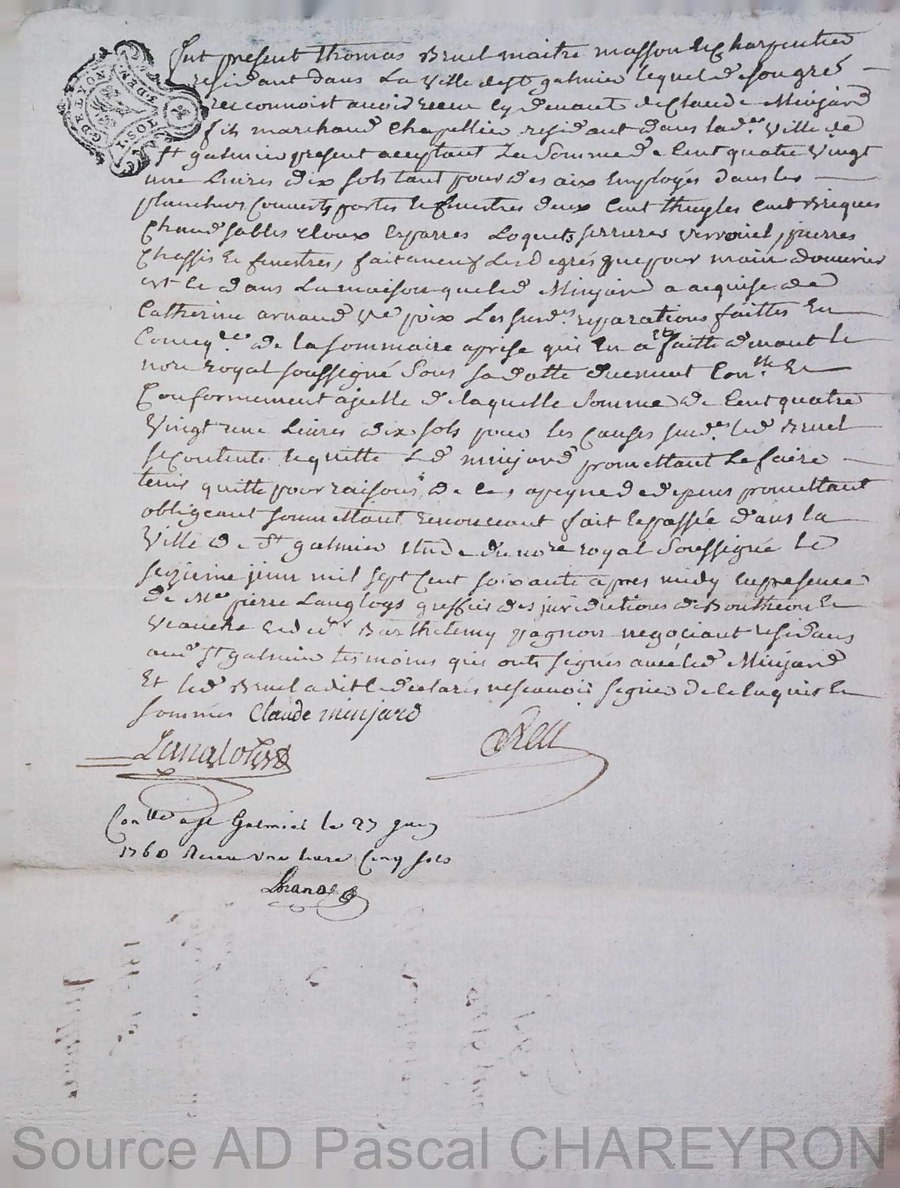 G. DE LYON
Fut present thomas Bruel maitre masson et Charpentier
residant dans La Ville de st galmier lequel de son gré
reconnoist avoir receu cy devant de Claude Minjard
fils marchand Chapellier residant dans lade. Ville de
st galmier present acceptant La Somme de Cent quatre Vingt
une Livres dix sols tant pour des aix Employés dans les
planchers Couverts portes et fenestres deux Cent thuyles Cent Briques
Chaud sables Cloux Esparres Loquets serrures Verrouiel, pierres
Chassis de fenestres, fait a neuf Les degrés que pour main d'ouvrier
et le dans La maison que led. Minjard a acquise de
Catherine arnaud Ve poix Les susds. reparations faittes En
de la sommaire aprise qui En a été faitte devant le
nore royal soussigné Sous sa datte duement Conllé Et
Conformement a jcelle de laquelle Somme de Cent quatre
Vingt une Livres dix sols pour les Causes susdes led. Bruel
se Contente et quitte Led. minjard promettant Le faire
tenir quitte pour raison de ce a peyne de depens promettant
obligeant soumettant renonceant fait et passée dans la
Ville de St galmier Etude du nore royal Soussignée Le
seizieme juin mil sept Cent soixante apres midy En presence
de Me pierre Langloys greffier des juridictions de Bouthéon Et
Veauche et de sr Barthelemy pagnon negociant residans
aud. st galmier temoins qui onts signés avec led. Minjard
Et led. Bruel a dit et declaré ne scavoir signer de ce Enquis Et
sommés Claude minjard
Langlois
Conllé a st Galmier le 27 juin
1760 Receu une livre Cinq sols
Source AD Pascal CHAREYRON